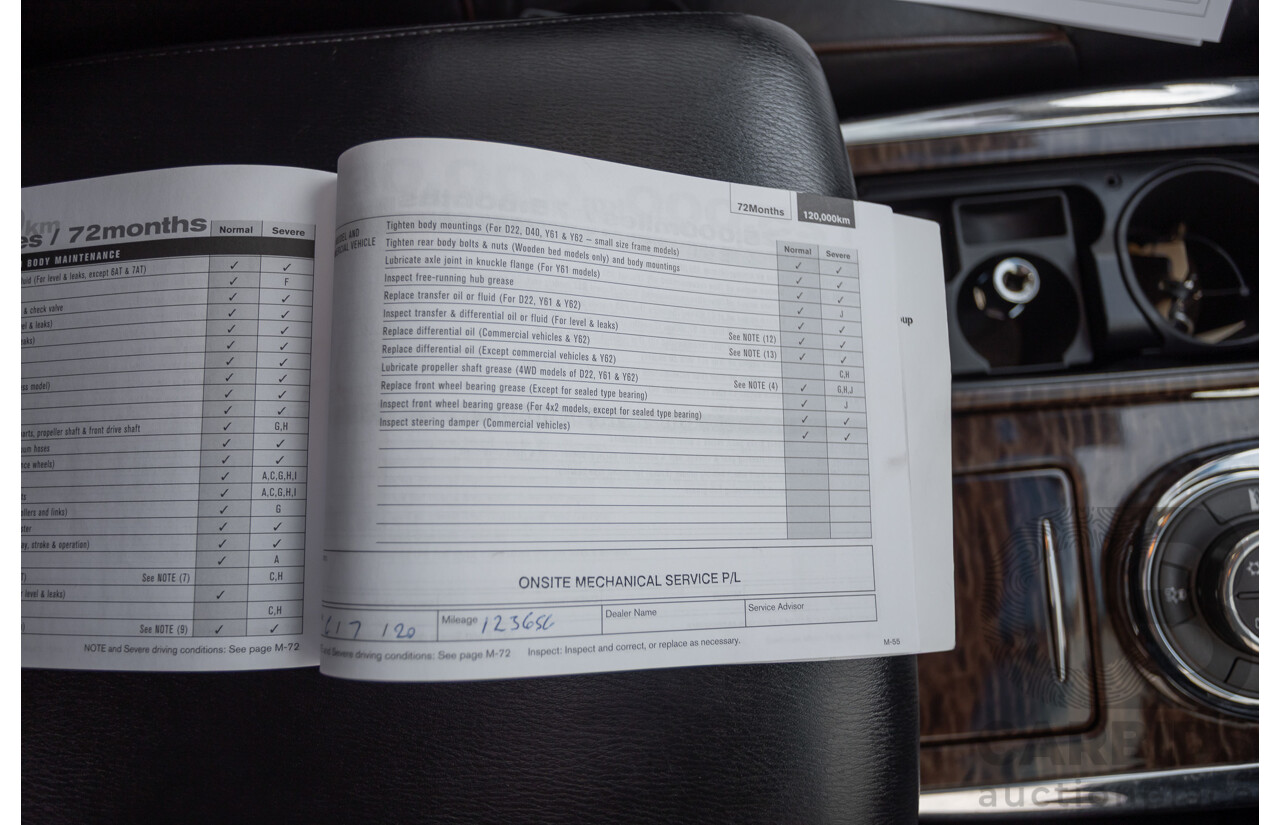 km
es / 72months
Normal Severe
BODY MAINTENANCE
(For level & leaks, except 6AT & 7AT) ✓ ✓
✓ F
& check valve ✓ ✓
& leaks) ✓ ✓
✓ ✓
✓ ✓
✓ ✓
model) ✓ ✓
✓ ✓
✓ ✓
propeller shaft & front drive shaft ✓ G,H
hoses ✓ ✓
wheels) ✓ ✓
✓ A,C,G,H,I
✓ A,C,G,H,I
and links) ✓ G
✓ ✓
stroke & operation) ✓ ✓
✓ A
See NOTE (7) C,H
level & leaks) ✓
C,H
See NOTE (9) ✓ ✓
NOTE and Severe driving conditions: See page M-72
72Months 120,000km
AND
VEHICLE
Normal Severe
Tighten body mountings (For D22, D40, Y61 & Y62 – small size frame models) ✓ ✓
Tighten rear body bolts & nuts (Wooden bed models only) and body mountings ✓ ✓
Lubricate axle joint in knuckle flange (For Y61 models) ✓ ✓
Inspect free-running hub grease ✓ J
Replace transfer oil or fluid (For D22, Y61 & Y62) ✓ ✓
Inspect transfer & differential oil or fluid (For level & leaks) See NOTE (12) ✓ ✓
Replace differential oil (Commercial vehicles & Y62) See NOTE (13) C,H
Replace differential oil (Except commercial vehicles & Y62) See NOTE (4) ✓ G,H,J
Lubricate propeller shaft grease (4WD models of D22, Y61 & Y62) ✓ J
Replace front wheel bearing grease (Except for sealed type bearing) ✓ ✓
Inspect front wheel bearing grease (For 4x2 models, except for sealed type bearing)
Inspect steering damper (Commercial vehicles)
ONSITE MECHANICAL SERVICE P/L
17 120 Mileage 123656 Dealer Name Service Advisor
and Severe driving conditions: See page M-72 Inspect: Inspect and correct, or replace as necessary.
M-55
up
CARB
auction